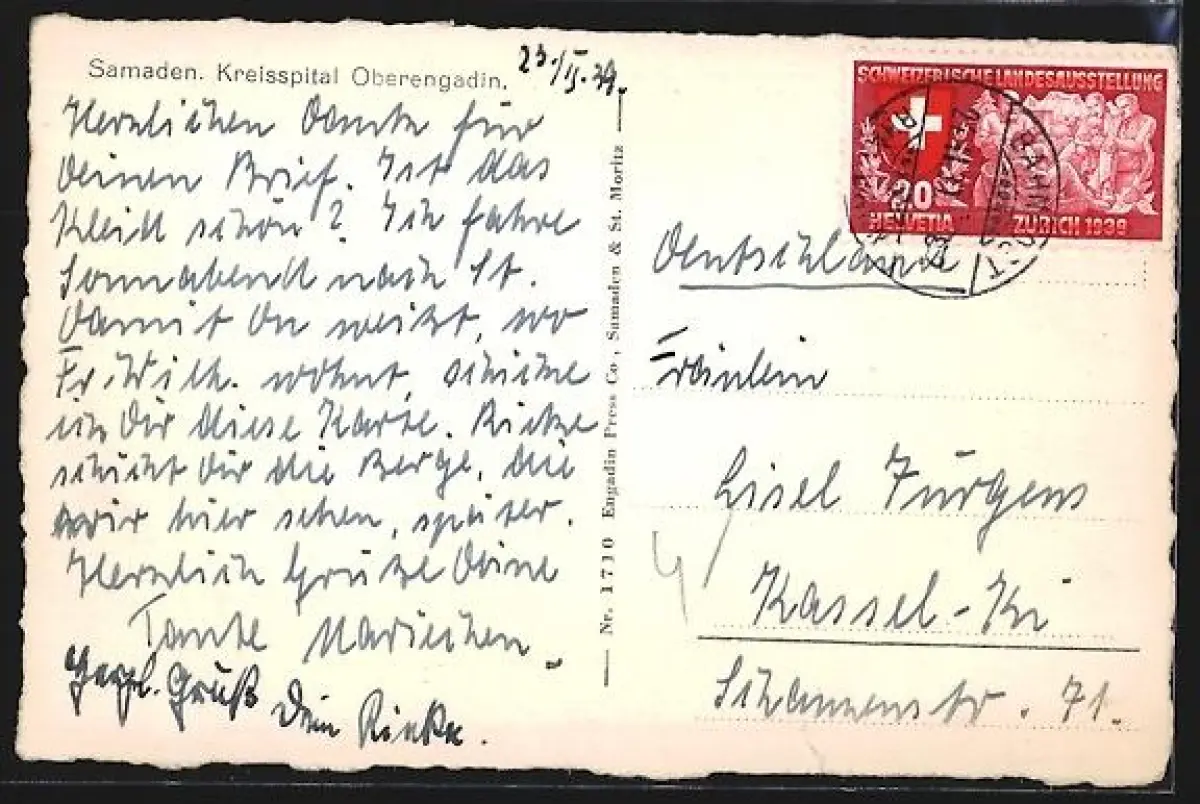 Samaden. Kreisspital Oberengadin.
23./II.39.
Herzlichen Dank für
Deinen Brief. Ist das
Kleid schön? Ich fahre
Sonnabend nach St.
Damit Du weißt, wo
Fr. Wilh. wohnt, schicke
ich Dir diese Karte. Rieke
schickt Dir die Berge, die
wir hier sehen, später.
Herzlich Grüße Deine
Tante Mariechen.
Herzl. Gruß Dein Rieke.
Nr. 1710 Engadin Press Co., Samaden & St. Moritz
SCHWEIZERISCHE LANDESAUSSTELLUNG
20
HELVETIA ZÜRICH 1939
Deutschland
Fräulein
Lisel Jürgens
Kassel-Ki
Schanzenstr. 71.